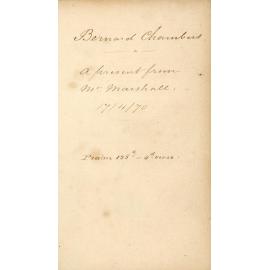 Bernard Chambers
a present from
Mr. Marshall.
17/4/70
Psalm 133ᵈ - 4ᵗʰ verse.